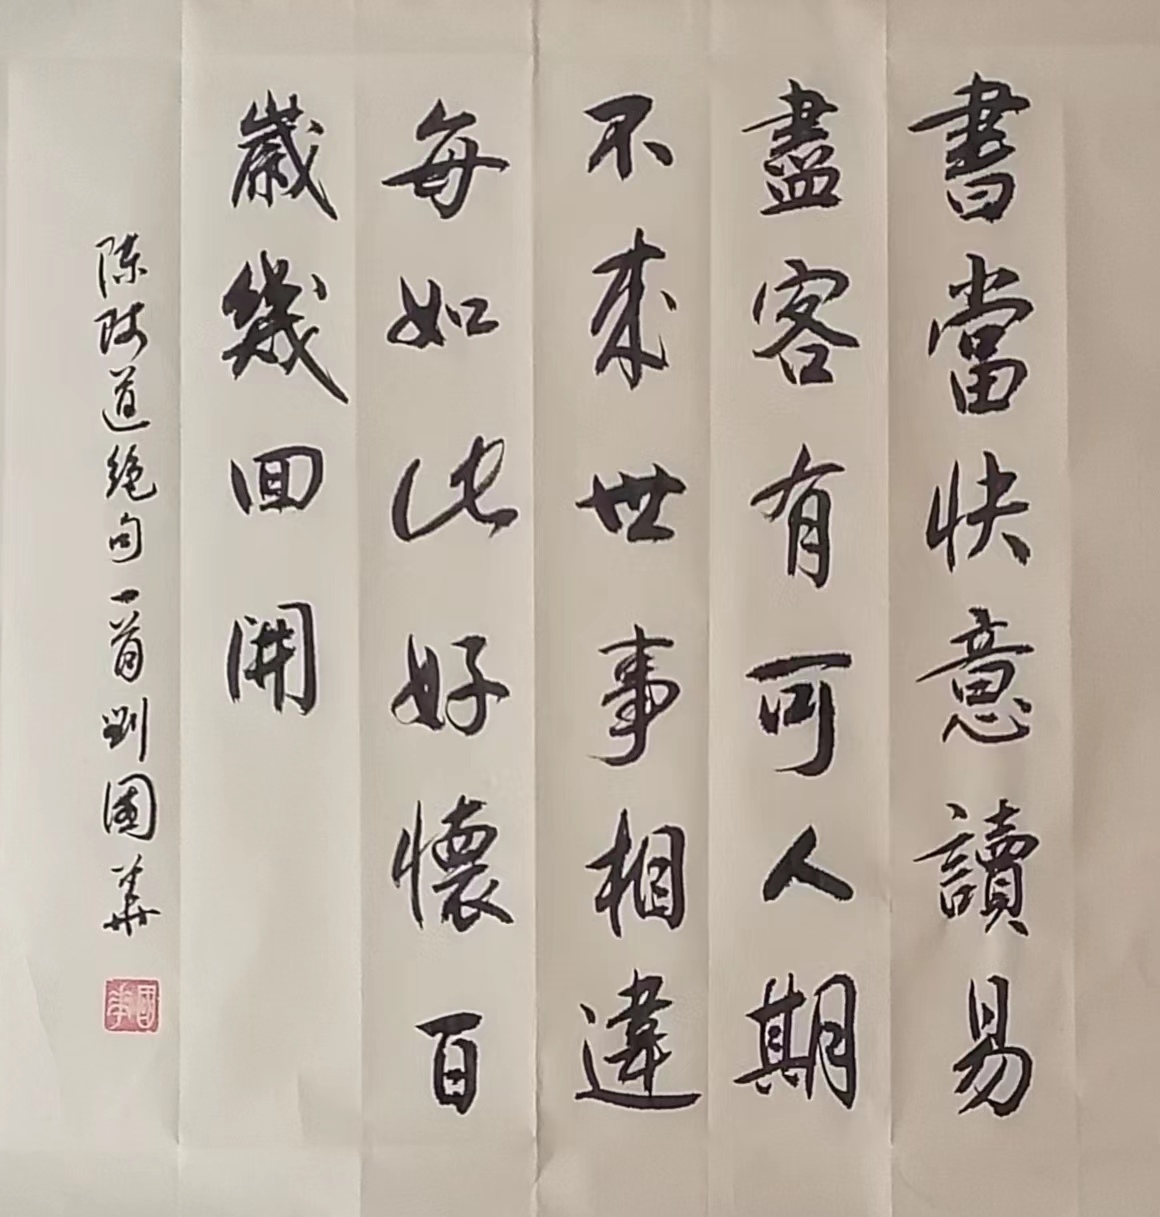 書當快意讀易
盡客有可人期
不來世事相違
每如此好懷百
歲幾回開
陈师道绝句一首劉國華
國華